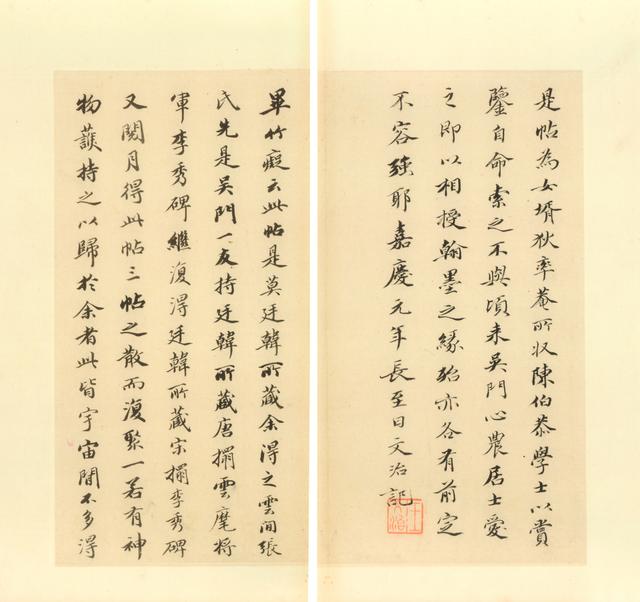 是帖為女壻狄率菴所収陳伯恭學士以賞
鑒自命索之不與頃来吳門心農居士愛
之即以相授翰墨之緣殆亦各有前定
不容強耶嘉慶元年長至日文治記
畢竹癡云此帖是莫廷韓所藏余得之雲間張
氏先是吳門一友持廷韓所藏唐搨雲麾將
軍李秀碑繼復得廷韓所藏宋搨李秀碑
又閱月得此帖三帖之散而復聚一若有神
物護持之以歸於余者此皆宇宙間不多得